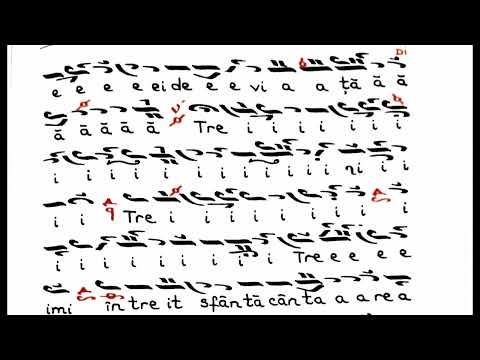 DI
e e e e ei de e e vi a a ță ă ă
ă ă ă ă ă Tre i i i i i i i
i i i i i i i i i i i i ni i i
i i Tre i i i i i i i i
i i i i i i i i i Tre e e e e
imi în tre it sfântă cânta a a rea